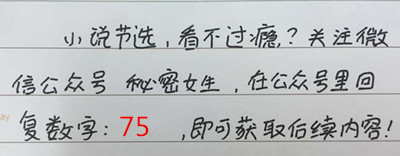 小说节选，看不过瘾？关注微
信公众号 秘密女生，在公众号里回
复数字：75 ，即可获取后续内容！
ay